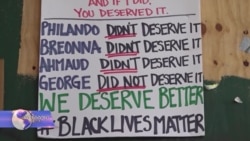 AND IF I DID,
YOU DESERVED IT.
PHILANDO DIDN'T DESERVE IT
BREONNA DIDN'T DESERVE IT
AHMAUD DIDN'T DESERVE IT
GEORGE DID NOT DESERVE IT
WE DESERVE BETTER
# BLACK LIVES MATTER